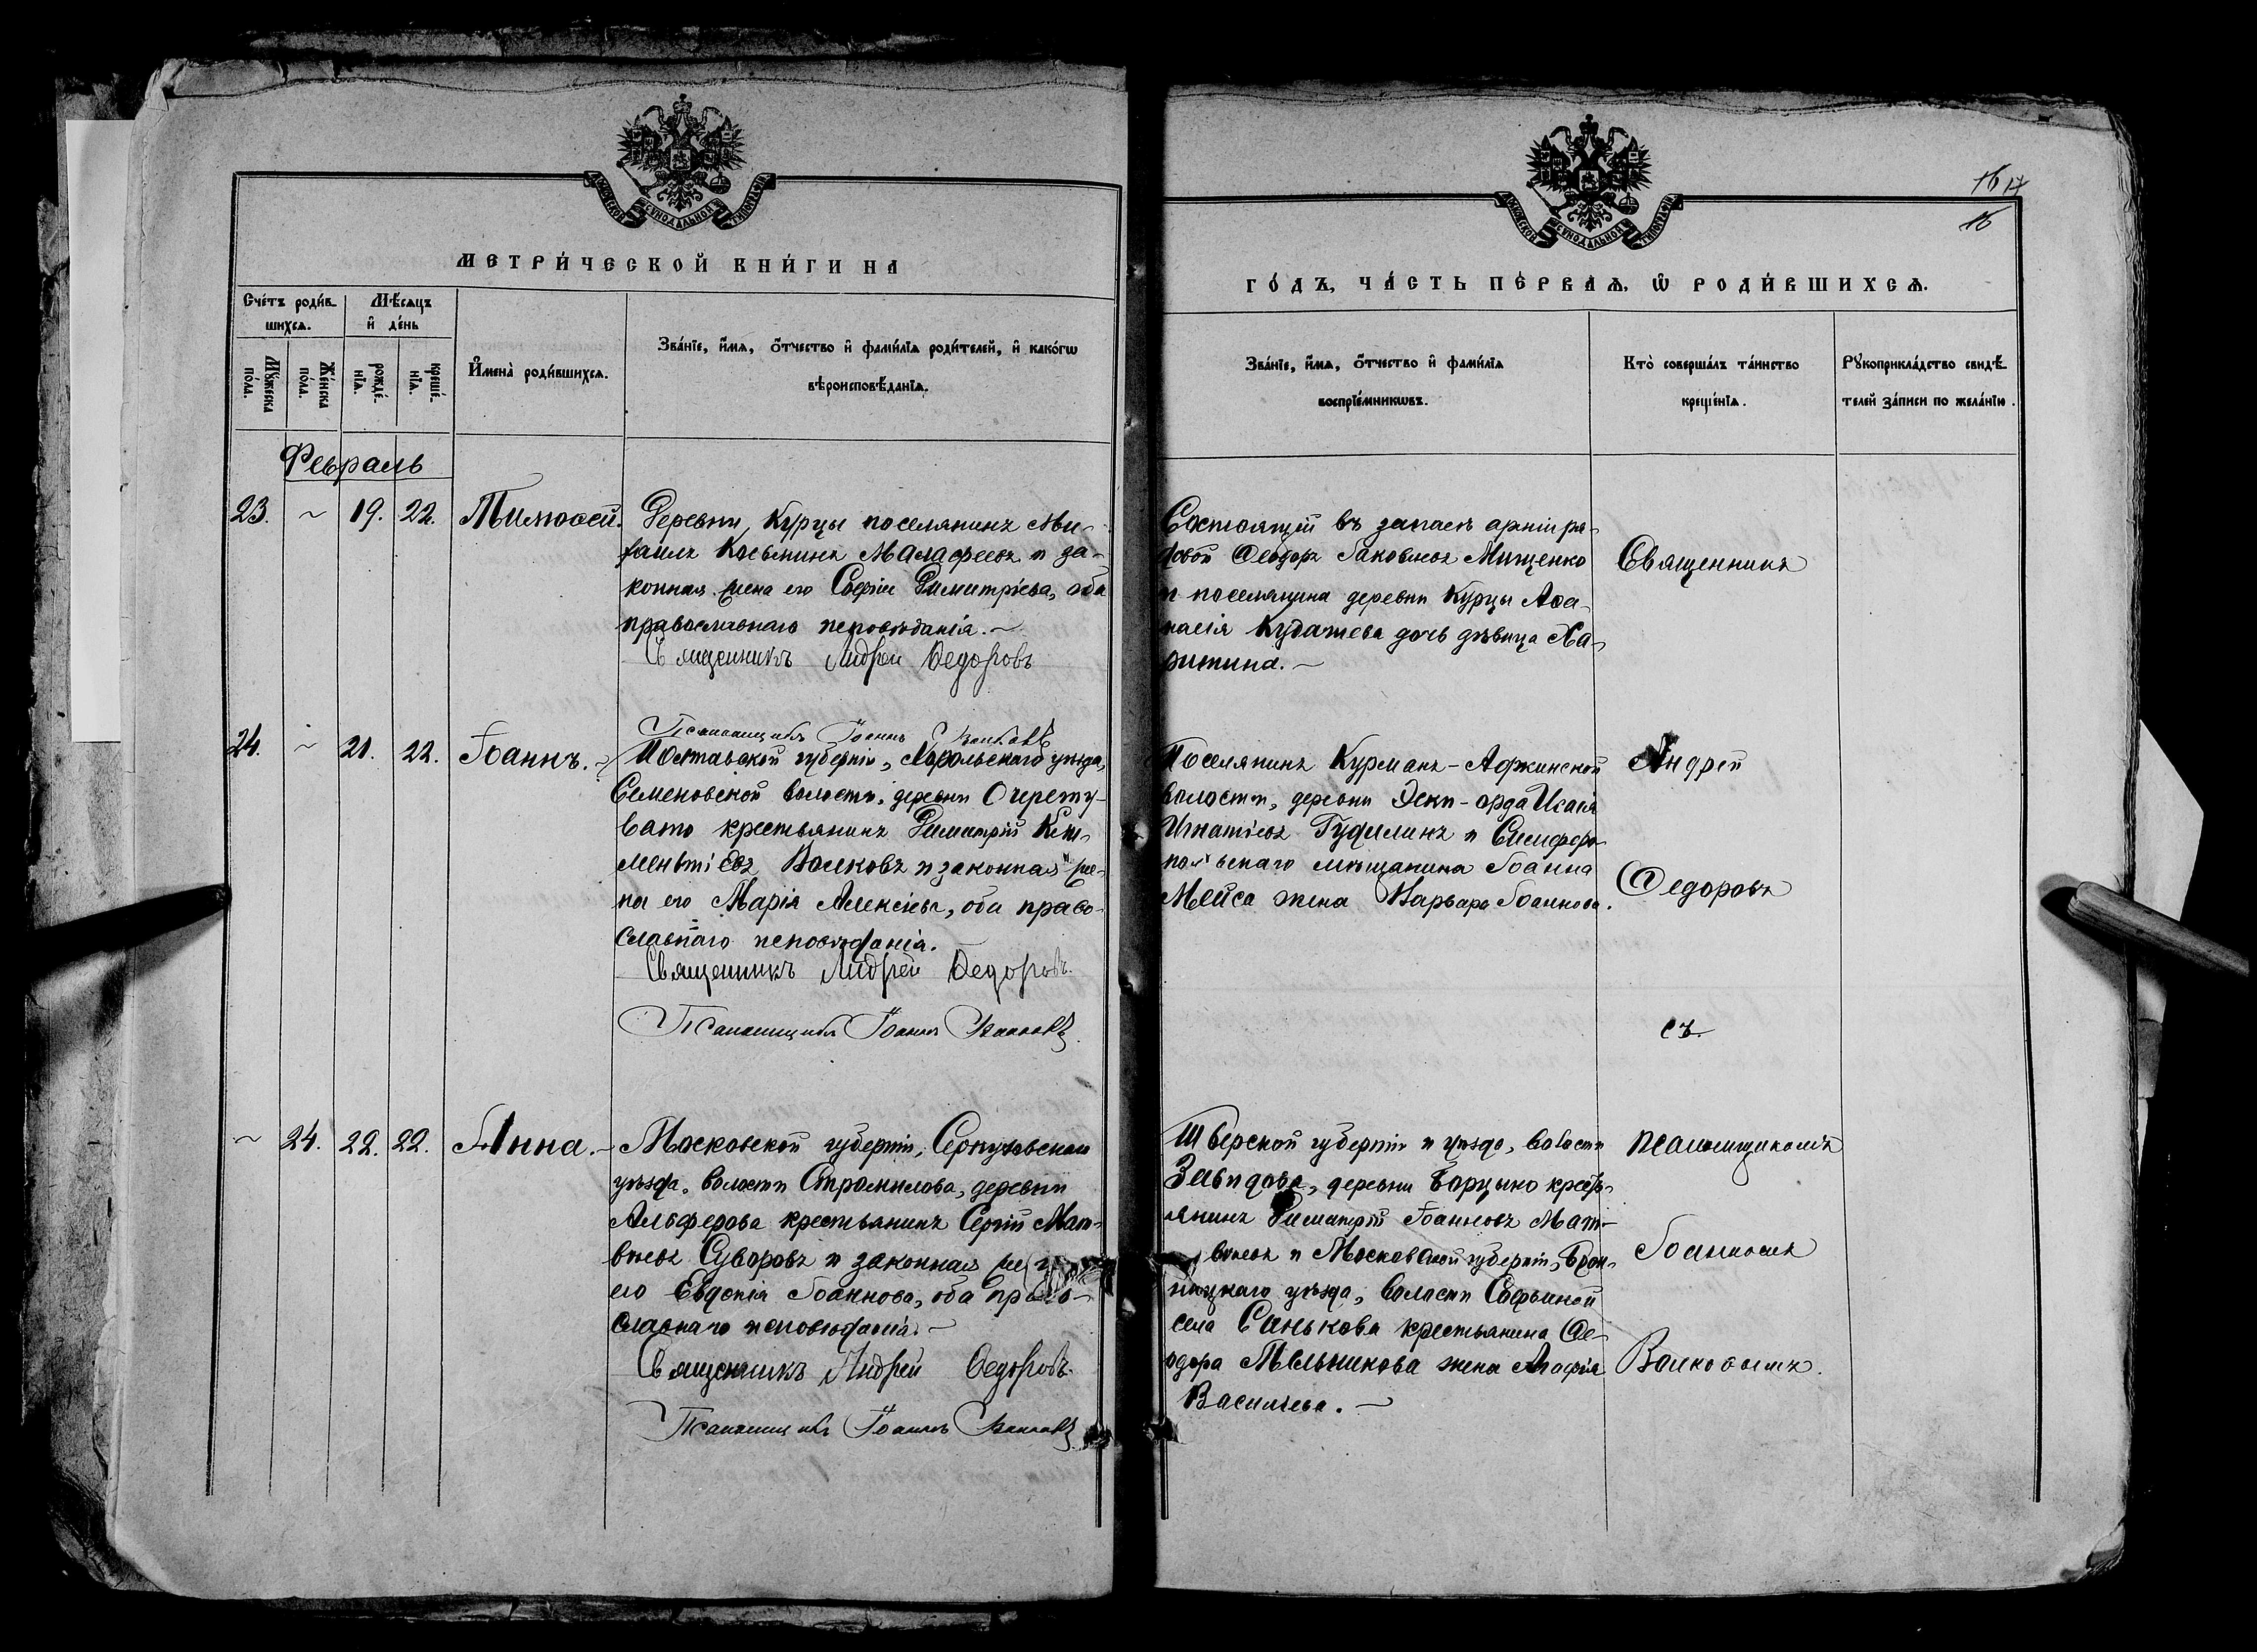 16 17
16
МОСКОВСКОЙ СѴНОДАЛЬНОЙ ТИПОГРАФІИ
МОСКОВСКОЙ СѴНОДАЛЬНОЙ ТИПОГРАФІИ
МЕТРИ́ЧЕСКОЙ КНИ́ГИ НА
ГО́ДЪ, ЧА́СТЬ ПЕ́РВАѦ, Ѿ РОДИ́ВШИХСѦ.
Сче́тъ роди́в-
шихсѧ.
Мѣ́сѧцъ
и҆ де́нь
Мꙋ́жеска
по́ла.
Же́нска
по́ла.
рожде́-
нїѧ.
креще́-
нїѧ.
И҆мена̀ роди́вшихсѧ.
Зва́нїе, и҆́мѧ, ѻ҆́тчество и҆ фами́лїѧ роди́телей, и҆ како́гѡ
вѣроисповѣ́данїѧ.
Зва́нїе, и҆́мѧ, ѻ҆́тчество и҆ фами́лїѧ
воспрїе́мникѡвъ.
Кто̀ соверша́лъ та́инство
креще́нїѧ.
Рꙋкоприкла́дство свидѣ́-
телей за́писи по жела́нїю.
Февраль
23. ~ 19. 22. Тимоѳей.
Деревни Курцы поселянинъ Ми-
хаилъ Косьминъ Малафеевъ и за-
конная жена его Софія Димитріева, оба
православнаго исповѣданія.~
Священникъ Андрей Ѳедоровъ
Псаломщикъ Іоаннъ Волковъ
Состоящій въ запасѣ арміи ря-
довой Ѳеодоръ Іаковлевъ Мищенко
и поселянина деревни Курцы Аѳа-
насія Кудашева дочь дѣвица Ха-
ритина.~
Священникъ
24. ~ 21. 22. Іоаннъ.~
Полтавской губерніи, Хорольскаго уѣзда,
Семеновской волости, деревни Очерету-
вато крестьянинъ Димитрій Кли-
ментіевъ Волковъ и законная же-
на его Марія Алексѣева, оба право-
славнаго исповѣданія.
Священникъ Андрей Ѳедоровъ.
Псаломщикъ Іоаннъ Волковъ
Поселянинъ Курманъ-Аджинской
волости, деревни Эски-орда Исаія
Игнатіевъ Гудилинъ и Симферо-
польскаго мѣщанина Іоанна
Мейса жена Варвара Іоаннова.
Андрей
Ѳедоровъ
съ
~ 24. 22. 22. Анна.~
Московской губерніи, Серпуховскаго
уѣзда, волости Стромилова, деревни
Алферова крестьянинъ Сергій Мат-
вѣевъ Суворовъ и законная жена
его Евдокія Іоаннова, оба право-
славнаго исповѣданія.~
Священникъ Андрей Ѳедоровъ.
Псаломщикъ Іоаннъ Волковъ
Тверской губерніи и уѣзда, волости
Завидова, деревни Борцыно кресть-
янинъ Димитрій Іоанновъ Мат-
вѣевъ и Московской губерніи, Брон-
ницкаго уѣзда, волости Софьиной
села Санькова крестьянина Ѳе-
одора Мельникова жена Агафія
Васильева.~
псаломщикомъ
Іоанномъ
Волковымъ.